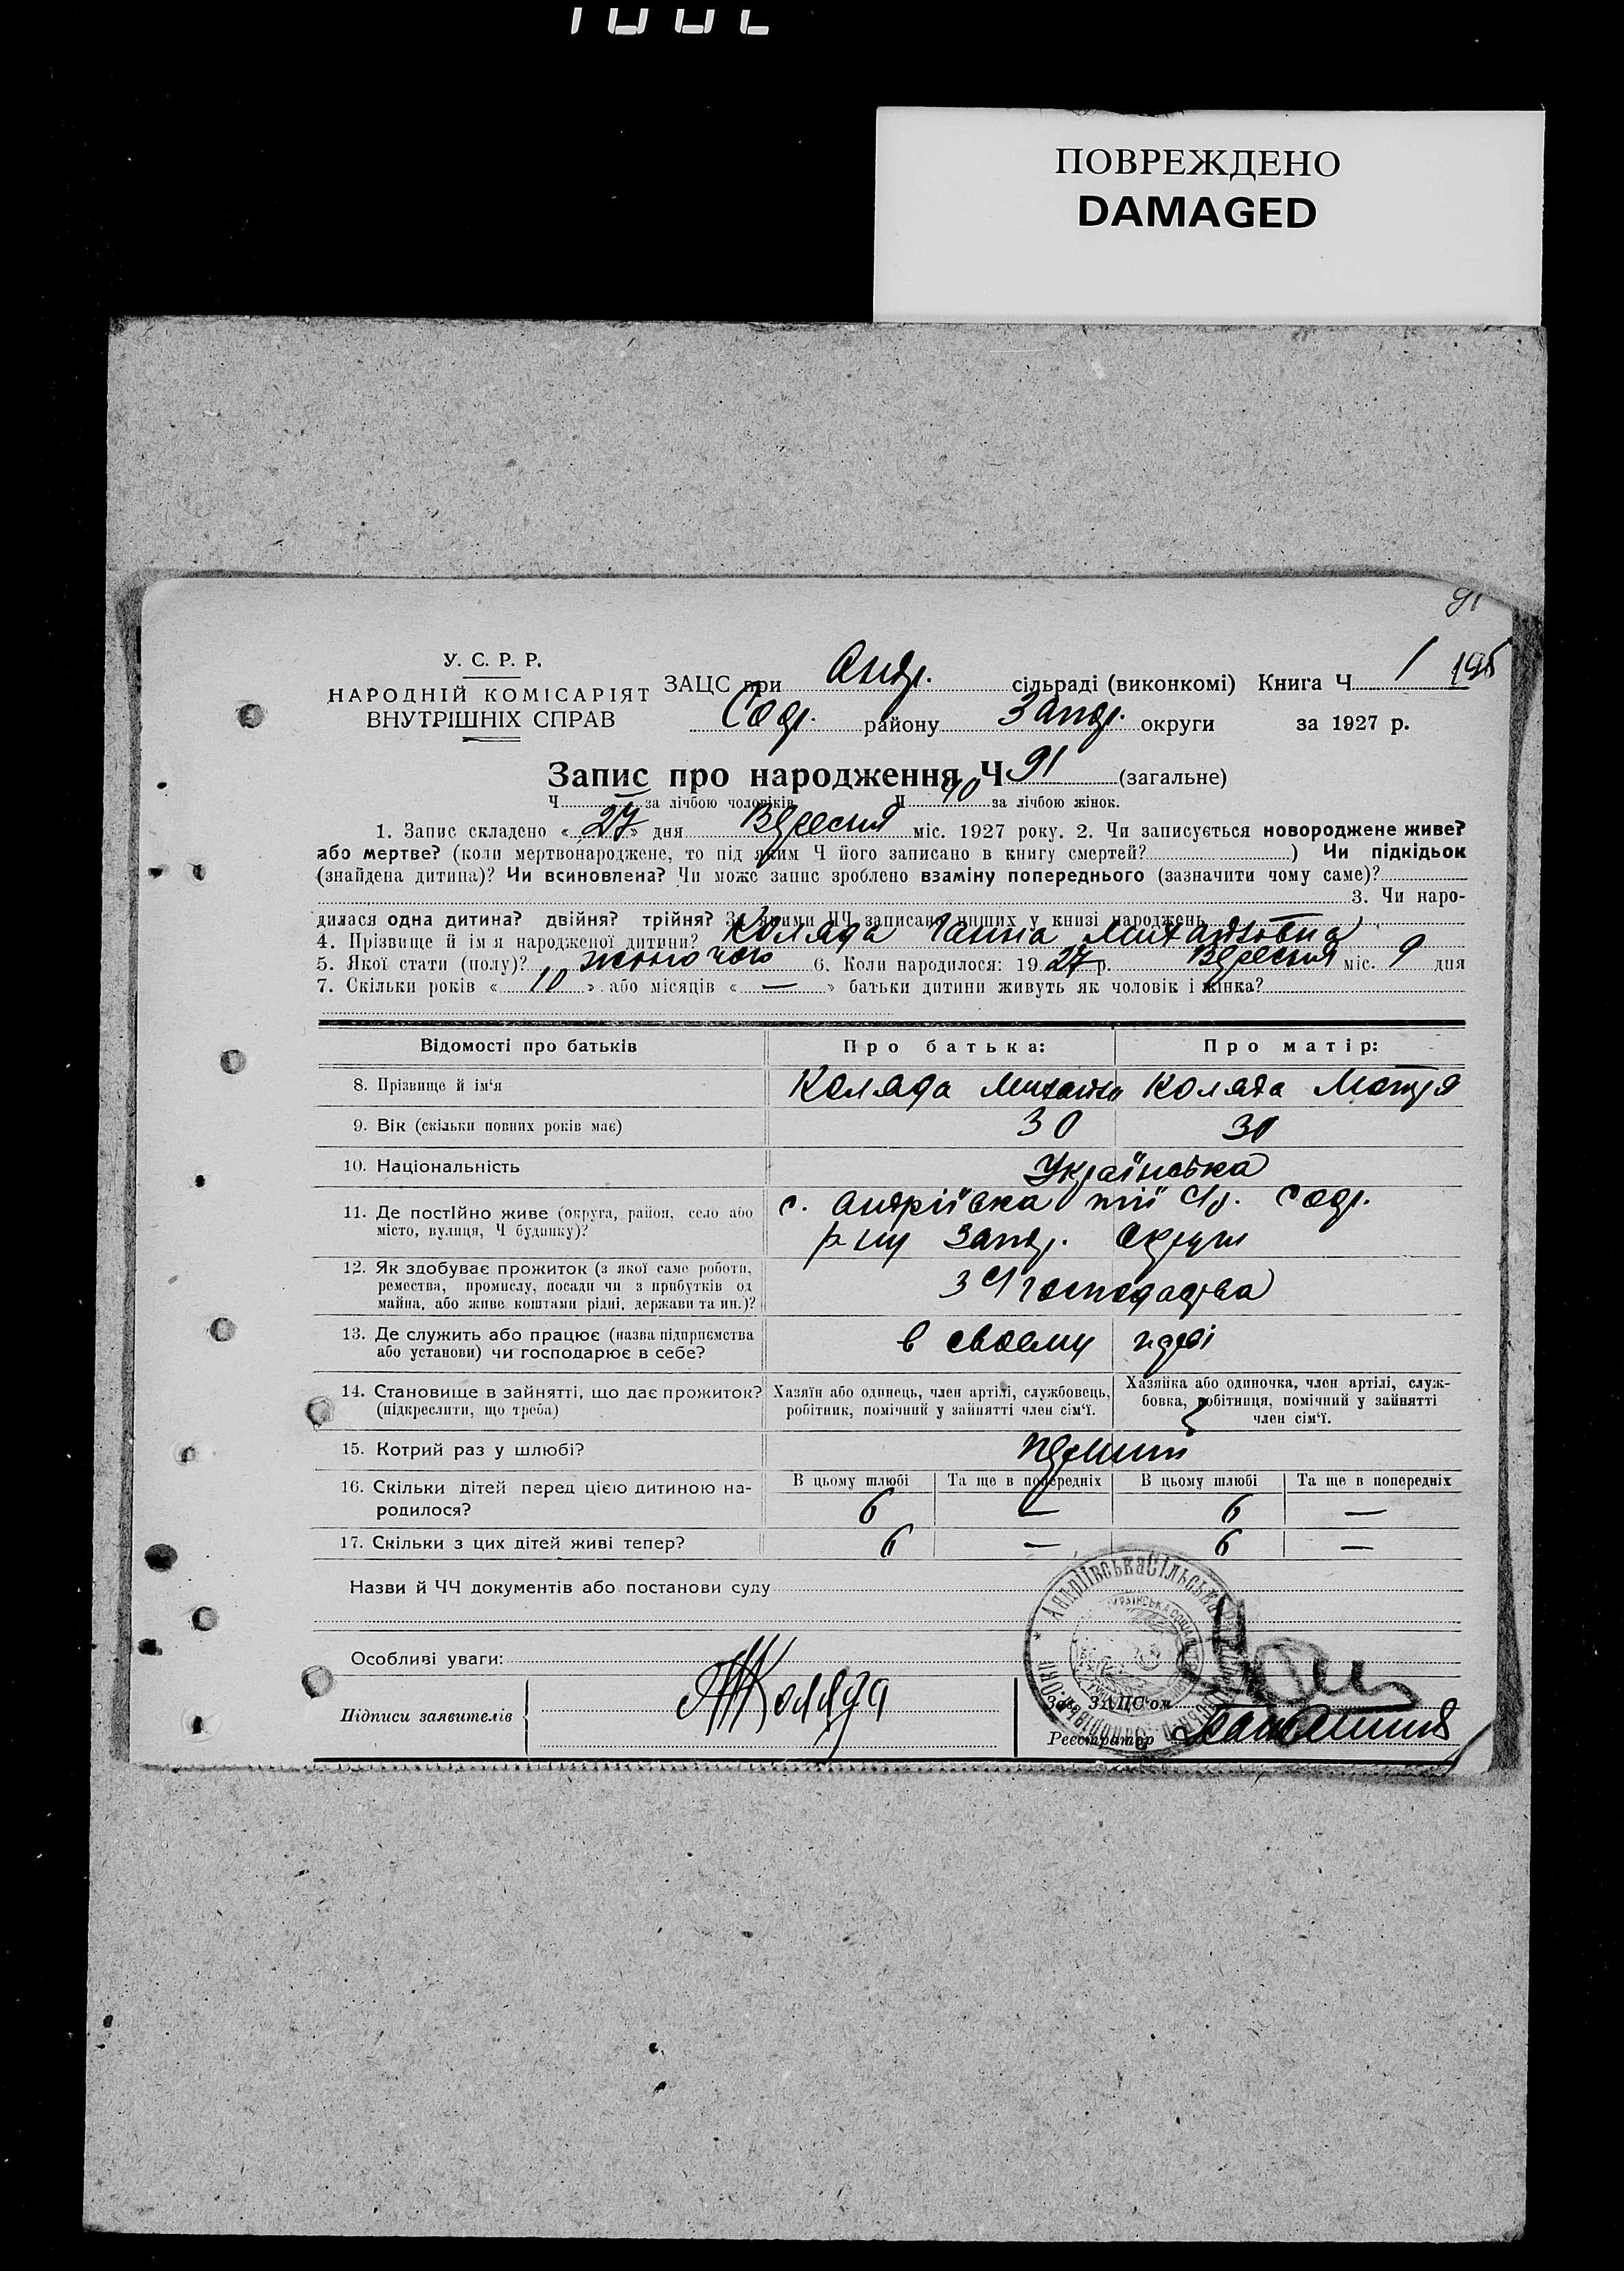 ПОВРЕЖДЕНО
DAMAGED
91
У. С. Р. Р.
НАРОДНІЙ КОМІСАРІЯТ
ВНУТРІШНІХ СПРАВ
ЗАЦС при Андр. сільраді (виконкомі) Книга Ч. 1 195
Софр. району Запор. округи за 1927 р.
Запис про народження Ч 91 (загальне)
Ч за лічбою чоловіків Ч 40 за лічбою жінок.
1. Запис складено « 27 » дня Вересня міс. 1927 року. 2. Чи записується новороджене живе?
або мертве? (коли мертвонароджене, то під яким Ч його записано в книгу смертей? ) Чи підкідьок
(знайдена дитина)? Чи всиновлена? Чи може запис зроблено взаміну попереднього (зазначити чому саме)?
3. Чи наро-
дилася одна дитина? двійня? трійня? За якими ЧЧ записано инших у книзі народжень
4. Прізвище й ім'я народженої дитини? Коляда Ганна Михайловна
5. Якої стати (полу)? жоночого 6. Коли народилося: 19 27 р. Вересня міс. 9 дня
7. Скільки років « 10 » або місяців « — » батьки дитини живуть як чоловік і жінка?
Відомості про батьків Про батька: Про матір:
8. Прізвище й ім'я Коляда Михайло Коляда Мотря
9. Вік (скільки повних років має) 30 30
10. Національність Українська
11. Де постійно живе (округа, район, село або
місто, вулиця, Ч будинку)?
с. Андріївка тії с/р. Софр.
р ну Запор. Округи
12. Як здобуває прожиток (з якої саме роботи,
ремества, промислу, посади чи з прибутків од
майна, або живе коштами рідні, держави та ин.)?
з С/господарства
13. Де служить або працює (назва підприємства
або установи) чи господарює в себе?
в своему
14. Становище в зайнятті, що дає прожиток?
(підкреслити, що треба)
Хазяїн або одинець, член артілі, службовець,
робітник, помічний у зайнятті член сім'ї.
Хазяйка або одиночка, член артілі, служ-
бовка, робітниця, помічний у зайнятті
член сім'ї.
15. Котрий раз у шлюбі? перший
16. Скільки дітей перед цією дитиною на-
родилося?
В цьому шлюбі Та ще в попередніх В цьому шлюбі Та ще в попередніх
6 — 6 —
17. Скільки з цих дітей живі тепер? 6 — 6 —
Назви й ЧЧ документів або постанови суду
Особливі уваги:
Підписи заявителів
Коляда
Андріївська Сільська
Зав. ЗАЦС'ом
Реєстратор